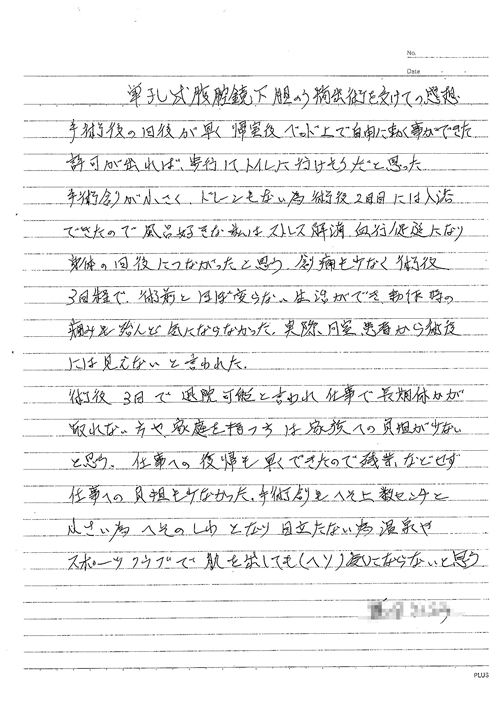 No.
Date
単孔式腹腔鏡下胆のう摘出術を受けての感想
手術後の回復が早く帰室後ベッド上で自由に動く事ができた
許可が出れば、歩行してトイレに行けそうだと思った
手術創が小さく、ドレンもない為術後2日目には入浴
できたので風呂好きな私はストレス解消、血行促進になり
身体の回復につながったと思う。創痛も少なく術後
3日程で、術前とほぼ変らない生活ができ、動作時の
痛みも殆んど気にならなかった。実際、同室患者から術後
には見えないと言われた。
術後3日で退院可能と言われ仕事で長期休みが
取れない方や、家庭を持つ方は家族への負担が少ない
と思う。仕事への復帰も早くできたので残業などせず
仕事への負担も少なかった。手術創もへそ上数センチと
小さい為へそのしわとなり目立たない為温泉や
スポーツクラブで肌を出しても(ヘソ)気にならないと思う
PLUS